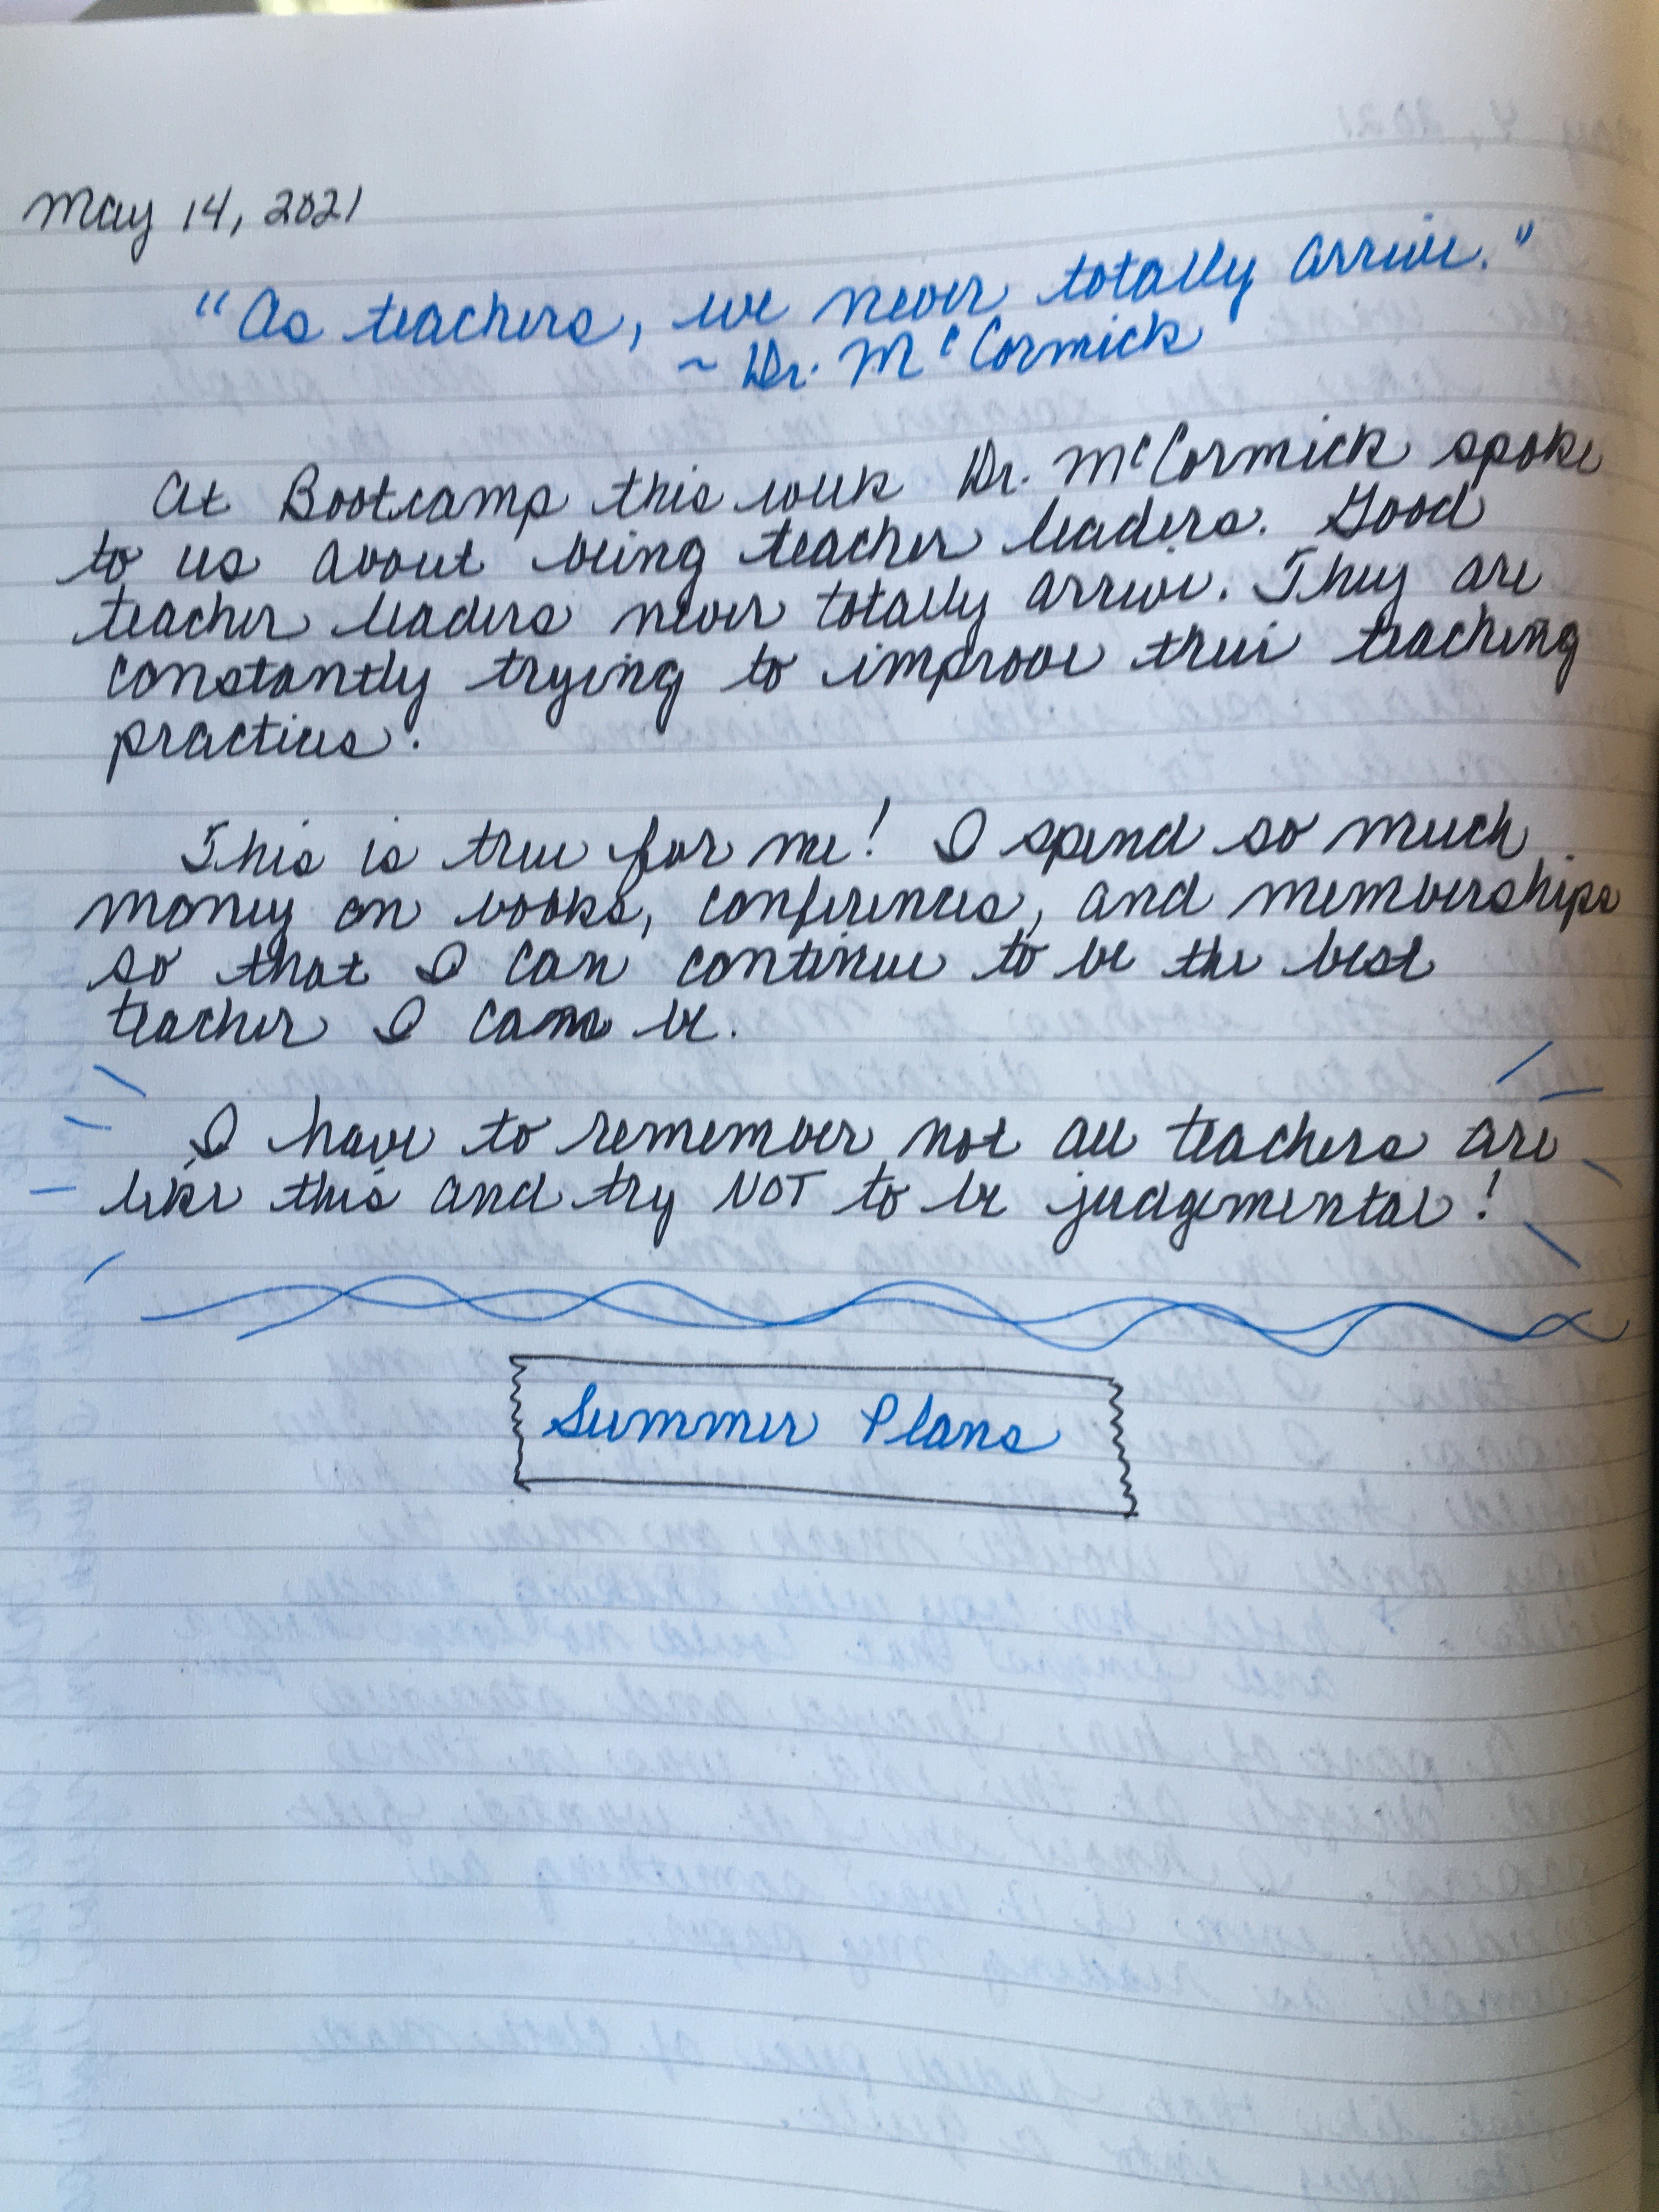 May 14, 2021
"As teachers, we never totally arrive."
~ Dr. McCormick
At Bootcamp this week Dr. McCormick spoke
to us about being teacher leaders. Good
teacher leaders never totally arrive. They are
constantly trying to improve their teaching
practices.
This is true for me! I spend so much
money on books, conferences, and memberships
so that I can continue to be the best
teacher I can be.
I have to remember not all teachers are
like this and try NOT to be judgemental!
Summer Plans